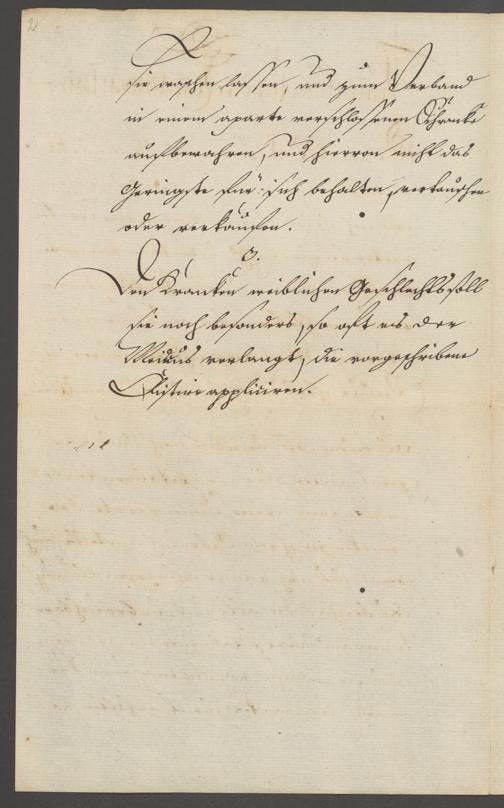 2
sie waschen lassen, und zum Verband
in einem aparte verschlossenen Schranke
aufbewahren, und hievon nicht das
Geringste für sich behalten, vertauschen
oder verkaufen.
3.
Den Kranken weiblichen Geschlechts soll
sie noch besonders, so oft es der
Medicus verlangt, die vorgeschribene
Clistire appliciren.